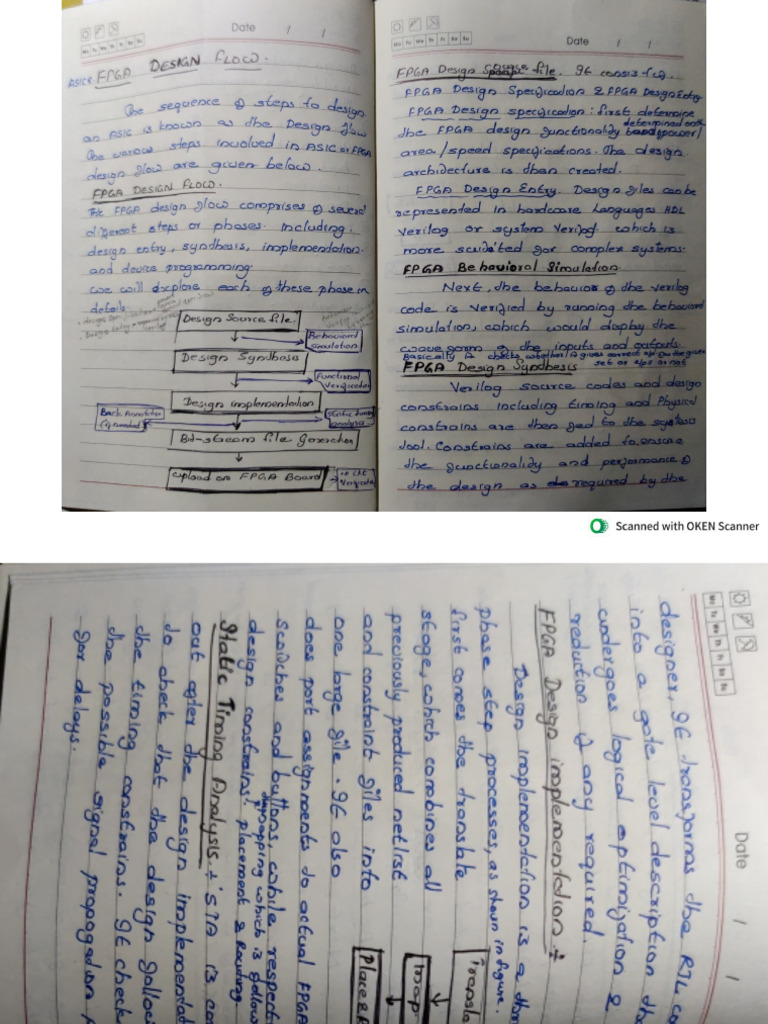 Date / /
ASIC & FPGA DESIGN FLOW.
The sequence of steps to design
an ASIC is known as the Design flow
The various steps involved in ASIC or FPGA
design flow are given below.
FPGA DESIGN FLOW.
The FPGA design flow comprises of several
different steps or phases. Including,
design entry, synthesis, implementation.
and device programming.
we will explore each of these phase in
details.
Design Source File.
Behavioral
simulation
Design Synthesis
Functional
Verification
Design implementation
Back Annotation
(if needed)
static timing
analysis
Bit-stream file Generation
Upload on FPGA Board
in ckt
Verification
Mo Tu We Th Fr Sa Su
Date / /
FPGA Design source file. It consist of.
FPGA Design Specification & FPGA Design Entry
FPGA Design specification: first determine
the FPGA design functionality determined and power/
area/speed specifications. The design.
architecture is then created.
FPGA Design Entry. Design files can be
represented in hardware Languages HDL
Verilog or system Verilog which is
more suited for complex systems.
FPGA Behavioral Simulation.
Next, the behavior of the verilog
code is verified by running the behavioral
simulation, which would display the
waveform of the inputs and outputs.
Basically it checks whether it gives correct o/p on the given
set of i/ps or not
FPGA Design Synthesis
Verilog source codes and design
constrains including timing and Physical
constrains are then fed to the synthesis
tool. Constrains are added to ensure
the functionality and performance of
the design as required by the
Scanned with OKEN Scanner
Date / /
designer, It transforms the RTL co
into a gate level description tha
undergoes logical optimization &
redution if any required.
FPGA Design implementation :-
Design implementation is a thr
phase step processes, as shown in figure.
first comes the translate
stage, which combines all
previously produced netlist
and constraint files into
one large file. It also
Transla
map
Place & R
does port assignments to actual FPGA
switches and buttons, while respect
design constrains, then mapping which is follow
placement & Routing
Static Timing Analysis :- STA is ca
out after the design implementat
to check that the design follow
the timing constrains. It check
the possible signal propagation p
for delays.